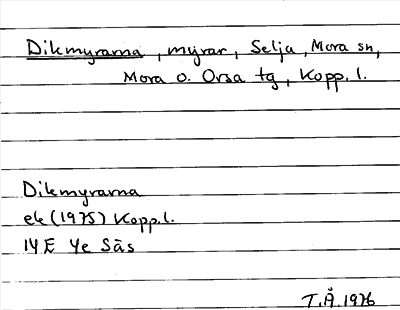 Dikmyrarna, myrar, Selja, Mora sn,
Mora o. Orsa tg, Kopp. l.
Dikmyrarna
ek (1975) Kopp. l.
14 E 4e Säs
T.Å. 1976